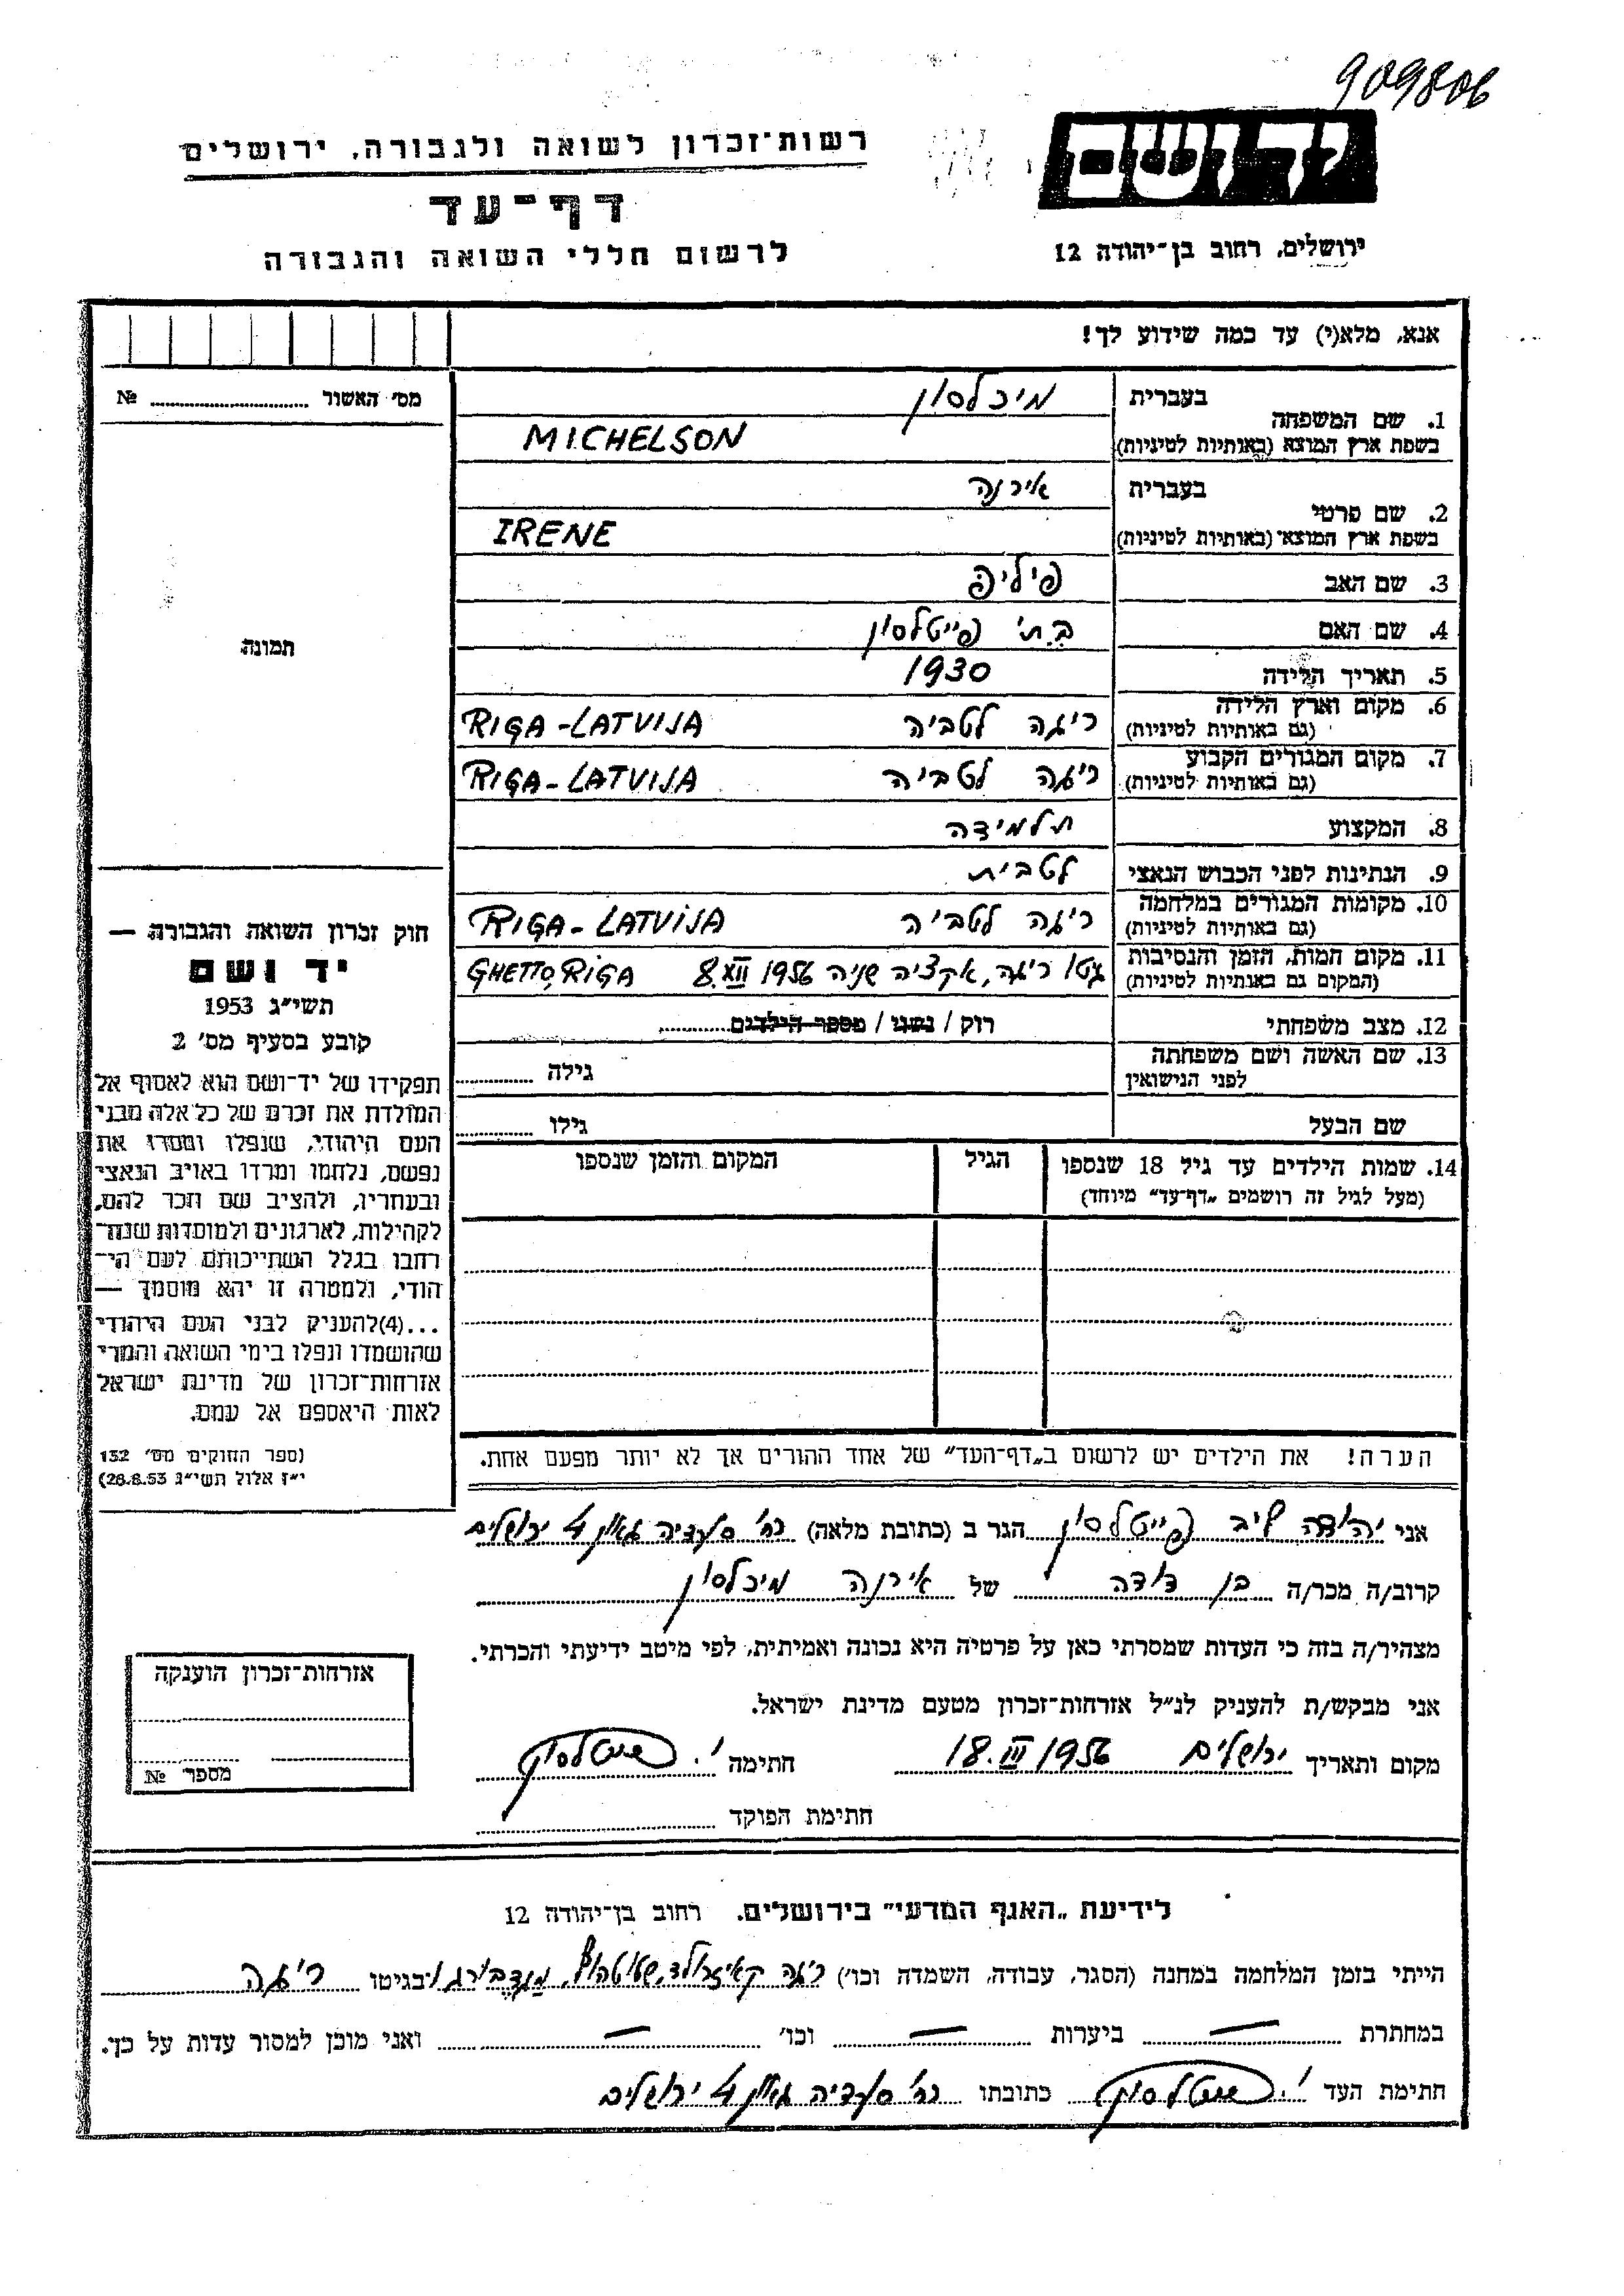 909806
רשות־זכרון לשואה ולגבורה, ירושלים
יד ושם
דף־עד
לרשום חללי השואה והגבורה
ירושלים, רחוב בן־יהודה 12
אנא, מלא(י) עד כמה שידוע לך!
מס' האשור ........ №
תמונה
1. שם המשפחה
בעברית מיכלסון
בשפת ארץ המוצא (באותיות לטיניות) MICHELSON
2. שם פרטי
בעברית אירנה
בשפת ארץ המוצא (באותיות לטיניות) IRENE
3. שם האב פיליפ
4. שם האם בת' פייטלסון
5. תאריך הלידה 1930
6. מקום וארץ הלידה ריגה לטביה RIGA-LATVIJA
(גם באותיות לטיניות)
7. מקום המגורים הקבוע ריגה לטביה RIGA-LATVIJA
(גם באותיות לטיניות)
8. המקצוע תלמידה
9. הנתינות לפני הכבוש הנאצי לטבית
10. מקומות המגורים במלחמה ריגה לטביה RIGA-LATVIJA
(גם באותיות לטיניות)
11. מקום המות, הזמן והנסיבות גטו ריגה, אקציה שניה 8.XII 1956 GHETTO, RIGA
(המקום גם באותיות לטיניות)
12. מצב משפחתי רוק / נשוי / מספר הילדים........
13. שם האשה ושם משפחתה גילה ........
לפני הנישואין
שם הבעל גילו ........
14. שמות הילדים עד גיל 18 שנספו הגיל המקום והזמן שנספו
(מעל לגיל זה רושמים „דף־עד" מיוחד)
הערה! את הילדים יש לרשום ב„דף־העד" של אחד ההורים אך לא יותר מפעם אחת.
חוק זכרון השואה והגבורה —
יד ושם
תשי"ג 1953
קובע בסעיף מס' 2
תפקידו של יד־ושם הוא לאסוף אל
המולדת את זכרם של כל אלה מבני
העם היהודי, שנפלו ומסרו את
נפשם, נלחמו ומרדו באויב הנאצי
ובעוזריו, ולהציב שם וזכר להם,
לקהילות, לארגונים ולמוסדות שנח־
רבו בגלל השתייכותם לעם הי־
הודי, ולמטרה זו יהא מוסמך —
...(4)להעניק לבני העם היהודי
שהושמדו ונפלו בימי השואה והמרי
אזרחות־זכרון של מדינת ישראל
לאות היאספם אל עמם.
(ספר החוקים מס' 132
י"ז אלול תשי"ג 28.8.53)
אני יהודה ליב פייטלסון הגר ב (כתובת מלאה) רח' סעדיה גאון 4 ירושלים
קרוב/ה מכר/ה בן דודה של אירנה מיכלסון
מצהיר/ה בזה כי העדות שמסרתי כאן על פרטיה היא נכונה ואמיתית, לפי מיטב ידיעתי והכרתי.
אני מבקש/ת להעניק לנ"ל אזרחות־זכרון מטעם מדינת ישראל.
מקום ותאריך ירושלים 18.III 1956 חתימה י. פייטלסון
חתימת הפוקד
אזרחות־זכרון הוענקה
מספר №
לידיעת „האגף המדעי" בירושלים, רחוב בן־יהודה 12
הייתי בזמן המלחמה במחנה (הסגר, עבודה, השמדה וכו') ריגה קאיזרולד, שטוטהוף, מגדבורג ו בגיטו ריגה
במחתרת — ביערות — וכו' — ואני מוכן למסור עדות על כך.
חתימת העד י. פייטלסון כתובתו רח' סעדיה גאון 4 ירושלים